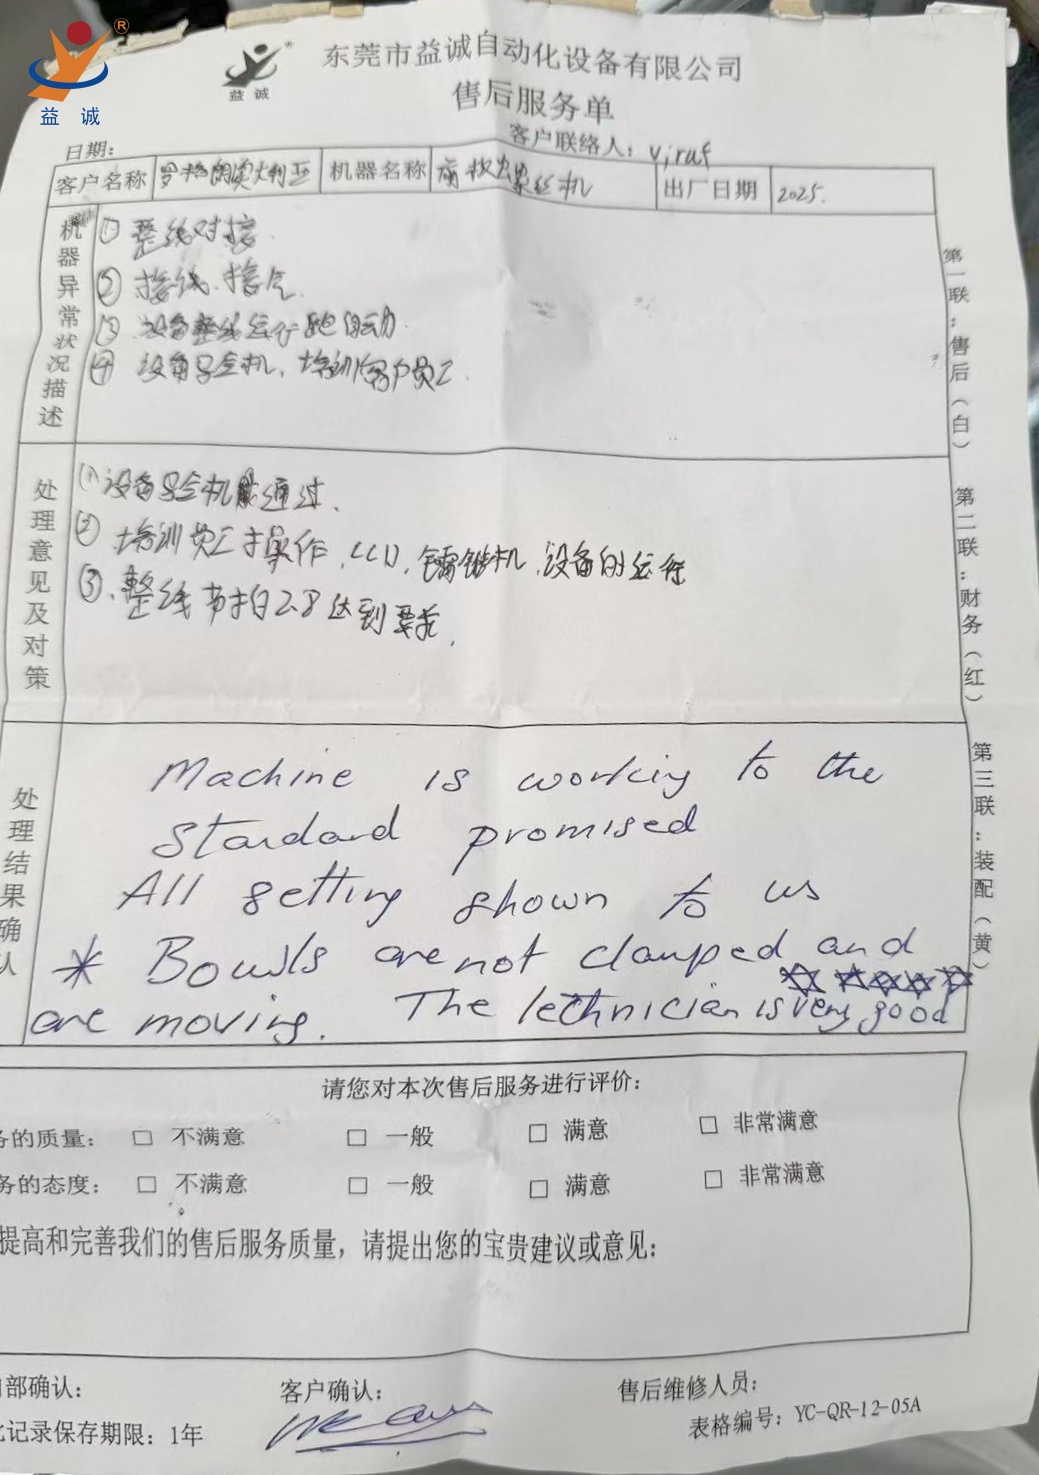 益 诚
®
益 诚
东莞市益诚自动化设备有限公司
售后服务单
日期：
客户联络人：viraf
客户名称 罗格朗澳大利亚 机器名称 螺丝机 出厂日期 2025.
机器异常状况描述
① 整线对接.
② 接线、接气.
③ 设备整线运行跑自动.
④ 设备安全机、培训客户员工.
处理意见及对策
① 设备安全机 通过、
② 培训员工 操作、CCD、镭雕机、设备的运行
③、整线节拍2.8达到要求.
处理结果确认
Machine is working to the
standard promised
All setting shown to us
* Bowls are not clamped and
are moving. The technician is very good
第一联：售后（白）
第二联：财务（红）
第三联：装配（黄）
请您对本次售后服务进行评价：
务的质量： □ 不满意 □ 一般 □ 满意 □ 非常满意
务的态度： □ 不满意 □ 一般 □ 满意 □ 非常满意
提高和完善我们的售后服务质量，请提出您的宝贵建议或意见：
部确认： 客户确认： 售后维修人员：
记录保存期限：1年 表格编号：YC-QR-12-05A